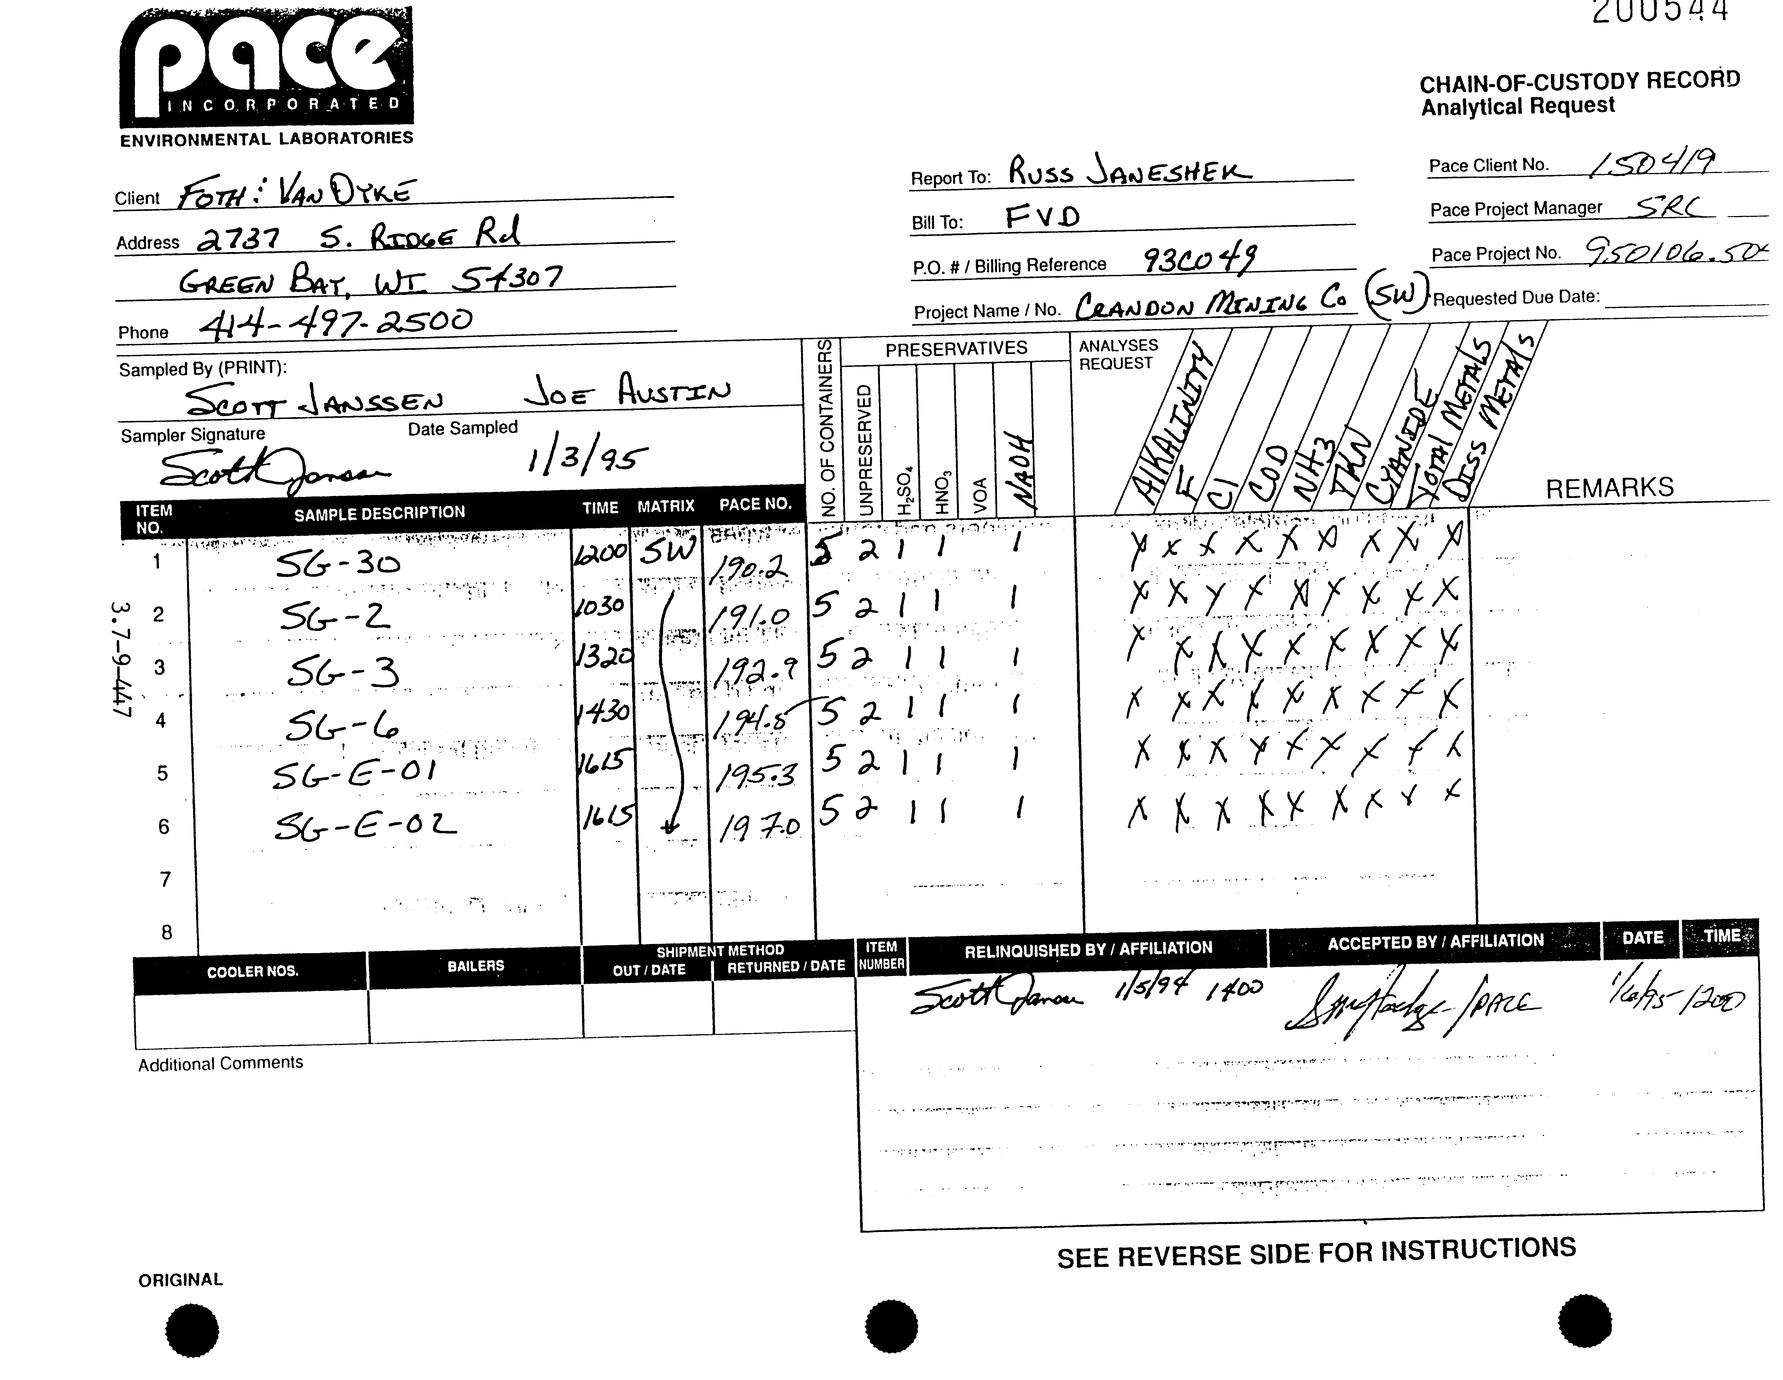 200544
pace
INCORPORATED
ENVIRONMENTAL LABORATORIES
CHAIN-OF-CUSTODY RECORD
Analytical Request
Client FOTH : VAN DYKE
Address 2737 S. RIDGE Rd
GREEN BAY, WI 54307
Phone 414-497-2500
Report To: RUSS JANESHEK
Bill To: FVD
P.O. # / Billing Reference 93C049
Project Name / No. CRANDON MINING Co (SW)
Pace Client No. 150419
Pace Project Manager SRC
Pace Project No. 950106.504
Requested Due Date:
Sampled By (PRINT):
SCOTT JANSSEN JOE AUSTIN
Sampler Signature Date Sampled
Scott Janssen 1/3/95
NO. OF CONTAINERS
PRESERVATIVES
UNPRESERVED H2SO4 HNO3 VOA NAOH
ANALYSES REQUEST
AlKALINITY F Cl COD NH3 TKN CYANIDE TOTAL METALS DISS METALS
REMARKS
ITEM NO. SAMPLE DESCRIPTION TIME MATRIX PACE NO.
1 SG-30 1200 SW 190.2 5 2 1 1 1 X X X X X X X X X
2 SG-2 1030 191.0 5 2 1 1 1 X X X X X X X X X
3 SG-3 1320 192.9 5 2 1 1 1 X X X X X X X X X
4 SG-6 1430 194.5 5 2 1 1 1 X X X X X X X X X
5 SG-E-01 1615 195.3 5 2 1 1 1 X X X X X X X X X
6 SG-E-02 1615 197.0 5 2 1 1 1 X X X X X X X X X
7
8
3.7-9-447
COOLER NOS. BAILERS SHIPMENT METHOD
OUT / DATE RETURNED / DATE
ITEM NUMBER RELINQUISHED BY / AFFILIATION ACCEPTED BY / AFFILIATION DATE TIME
Scott Janssen 1/5/94 1400 /PACE 1/6/95 1200
Additional Comments
SEE REVERSE SIDE FOR INSTRUCTIONS
ORIGINAL